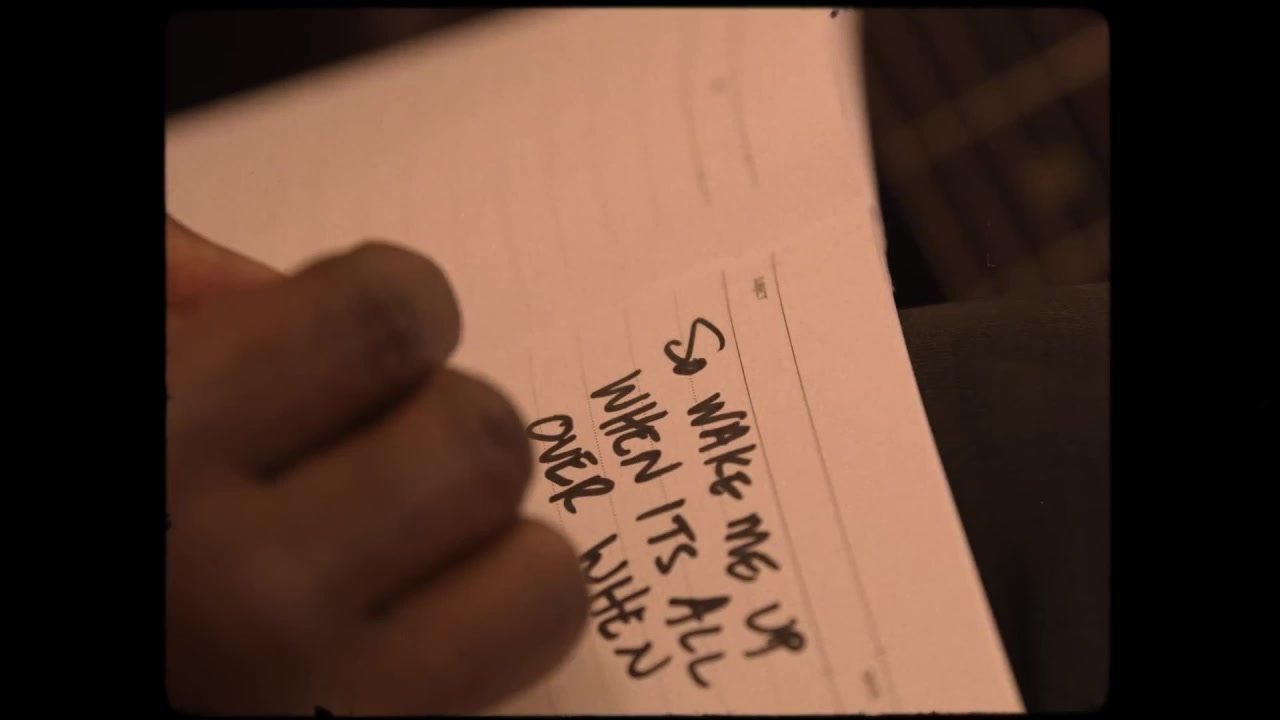 So WAKE ME UP
WHEN ITS ALL
OVER WHEN